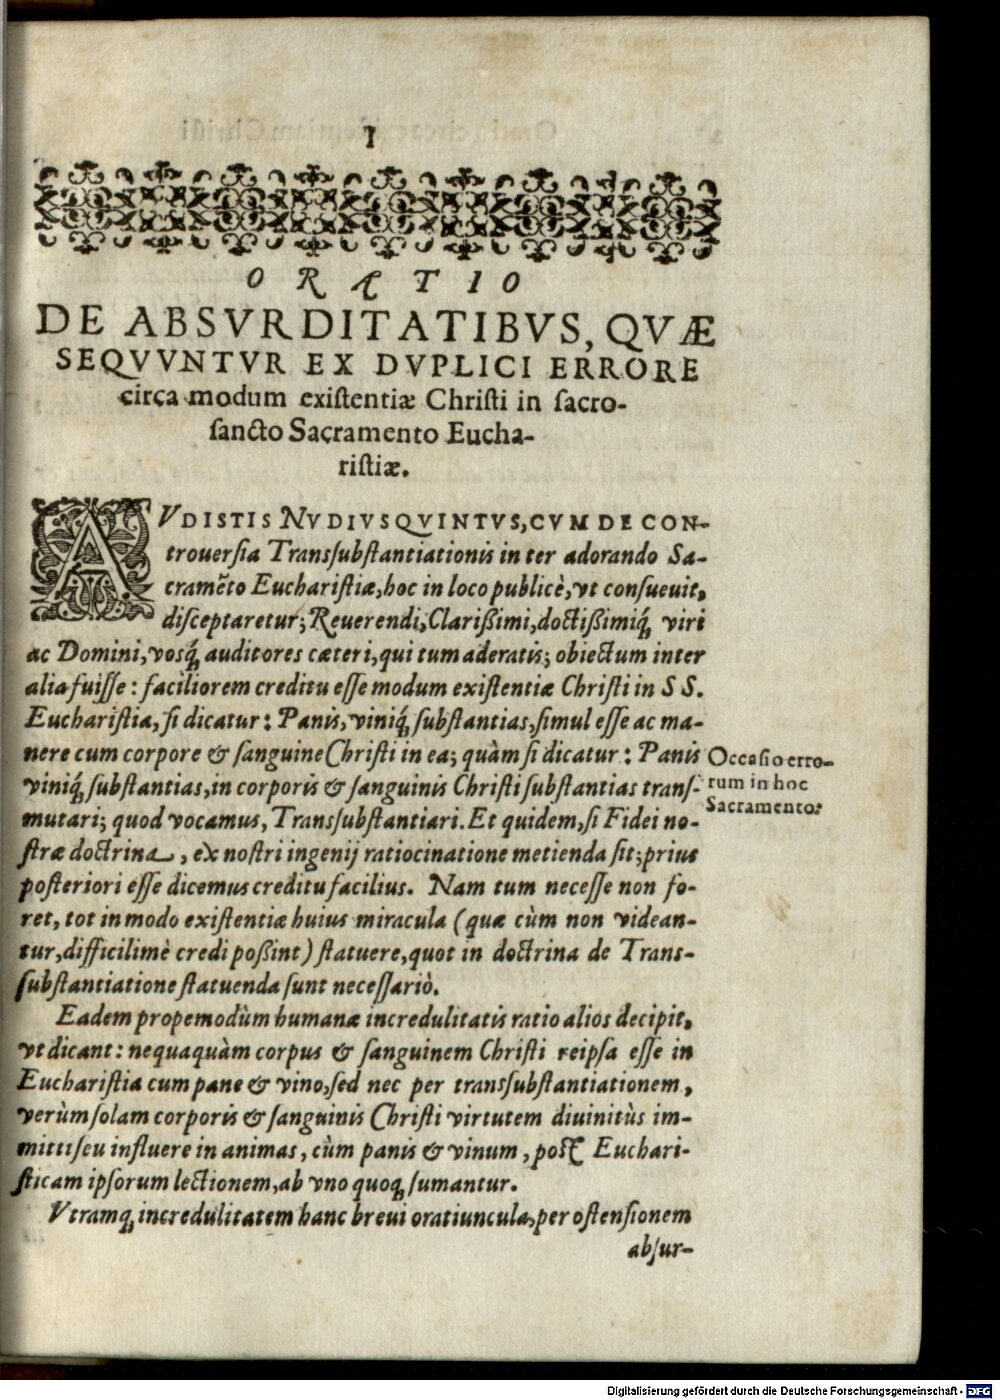 I
ORATIO
DE ABSVRDITATIBVS, QVÆ
SEQVVNTVR EX DVPLICI ERRORE
circa modum existentiæ Christi in sacro-
sancto Sacramento Eucha-
ristiæ.
AVDISTIS NVDIVSQVINTVS, CVM DE CON-
trouersia Transsubstantiationis in ter adorando Sa-
cramẽto Eucharistiæ, hoc in loco publicè, vt consueuit,
disceptaretur; Reuerendi, Clarißimi, doctißimiq́; viri
ac Domini, vosq́; auditores cæteri, qui tum aderatis; obiectum inter
alia fuisse: faciliorem creditu esse modum existentiæ Christi in SS.
Eucharistia, si dicatur: Panis, viniq́; substantias, simul esse ac ma-
nere cum corpore & sanguine Christi in ea; quàm si dicatur: Panis
viniq́; substantias, in corporis & sanguinis Christi substantias trans-
mutari; quod vocamus, Transsubstantiari. Et quidem, si Fidei no-
stræ doctrina, ex nostri ingenij ratiocinatione metienda sit; prius
posteriori esse dicemus creditu facilius. Nam tum necesse non fo-
ret, tot in modo existentiæ huius miracula (quæ cùm non videan-
tur, difficilimè credi poßint) statuere, quot in doctrina de Trans-
substantiatione statuenda sunt necessariò.
Occasio erro-
rum in hoc
Sacramento.
Eadem propemodùm humanæ incredulitatis ratio alios decipit,
vt dicant: nequaquàm corpus & sanguinem Christi reipsa esse in
Eucharistia cum pane & vino, sed nec per transsubstantiationem,
verùm solam corporis & sanguinis Christi virtutem diuinitùs im-
mitti seu influere in animas, cùm panis & vinum, post Euchari-
sticam ipsorum lectionem, ab vno quoq; sumantur.
Vtramq; incredulitatem hanc breui oratiuncula, per ostensionem
absur-
Digitalisierung gefördert durch die Deutsche Forschungsgemeinschaft - DFG